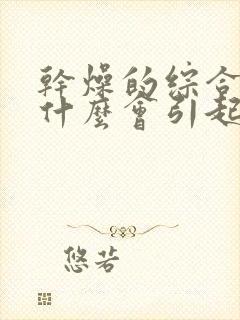 幹燥的綜合
什麼會引起
悠若